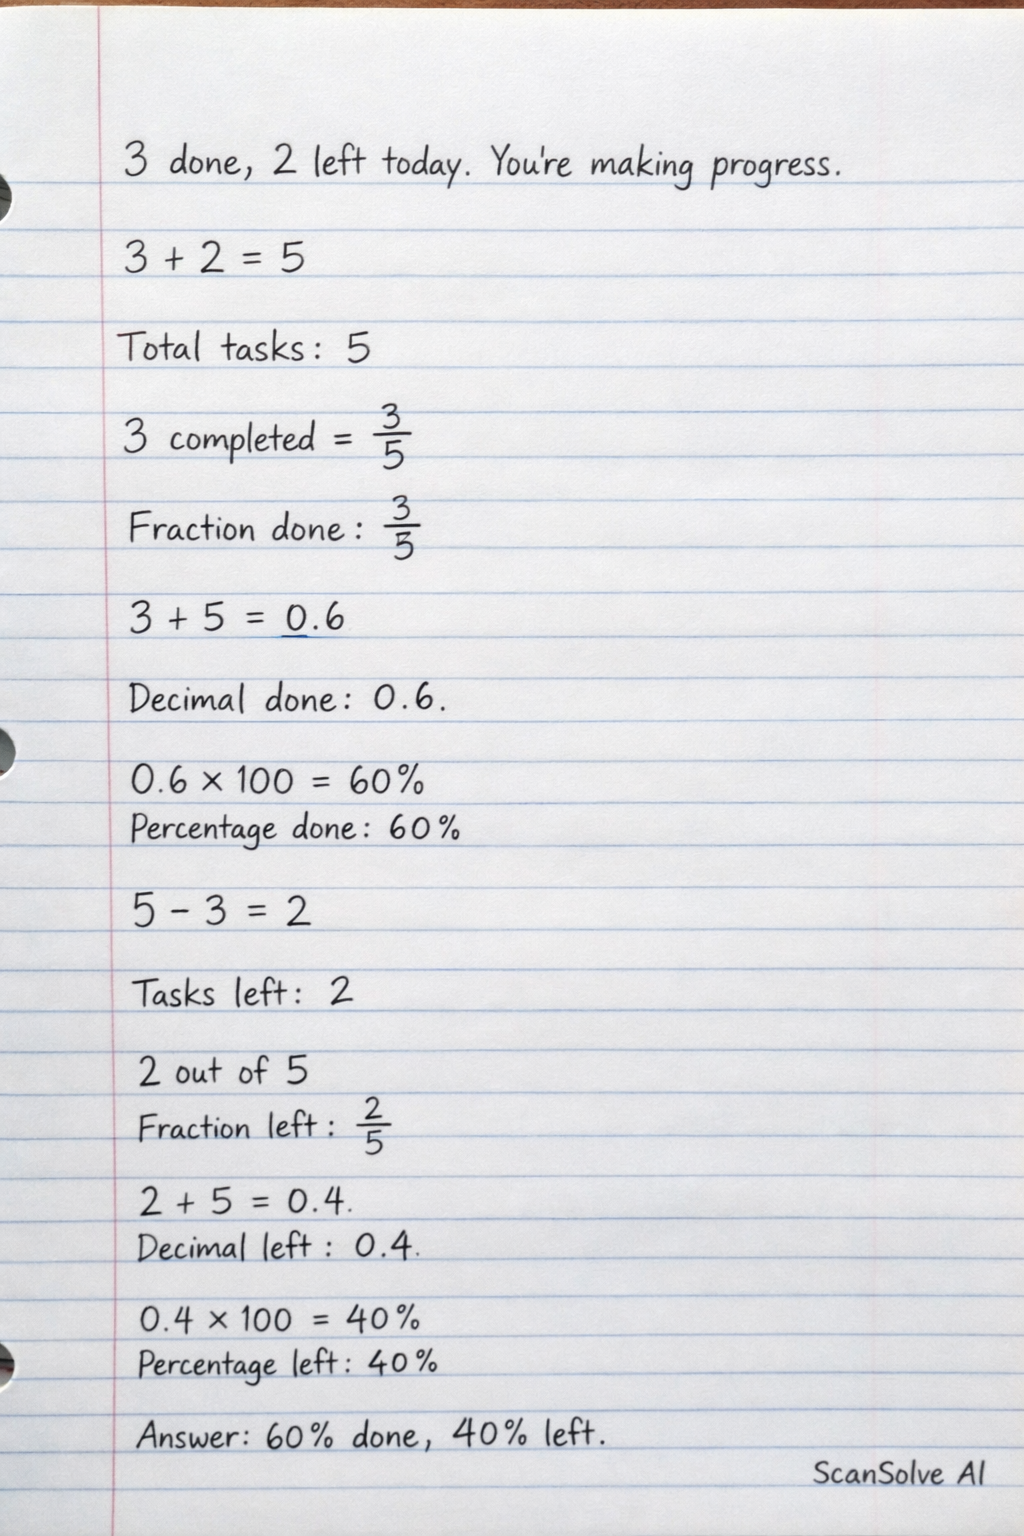 3 done, 2 left today. You're making progress.
3 + 2 = 5
Total tasks: 5
3 completed = 3/5
Fraction done: 3/5
3 + 5 = 0.6
Decimal done: 0.6.
0.6 × 100 = 60%
Percentage done: 60%
5 - 3 = 2
Tasks left: 2
2 out of 5
Fraction left: 2/5
2 + 5 = 0.4.
Decimal left: 0.4.
0.4 × 100 = 40%
Percentage left: 40%
Answer: 60% done, 40% left.
ScanSolve AI